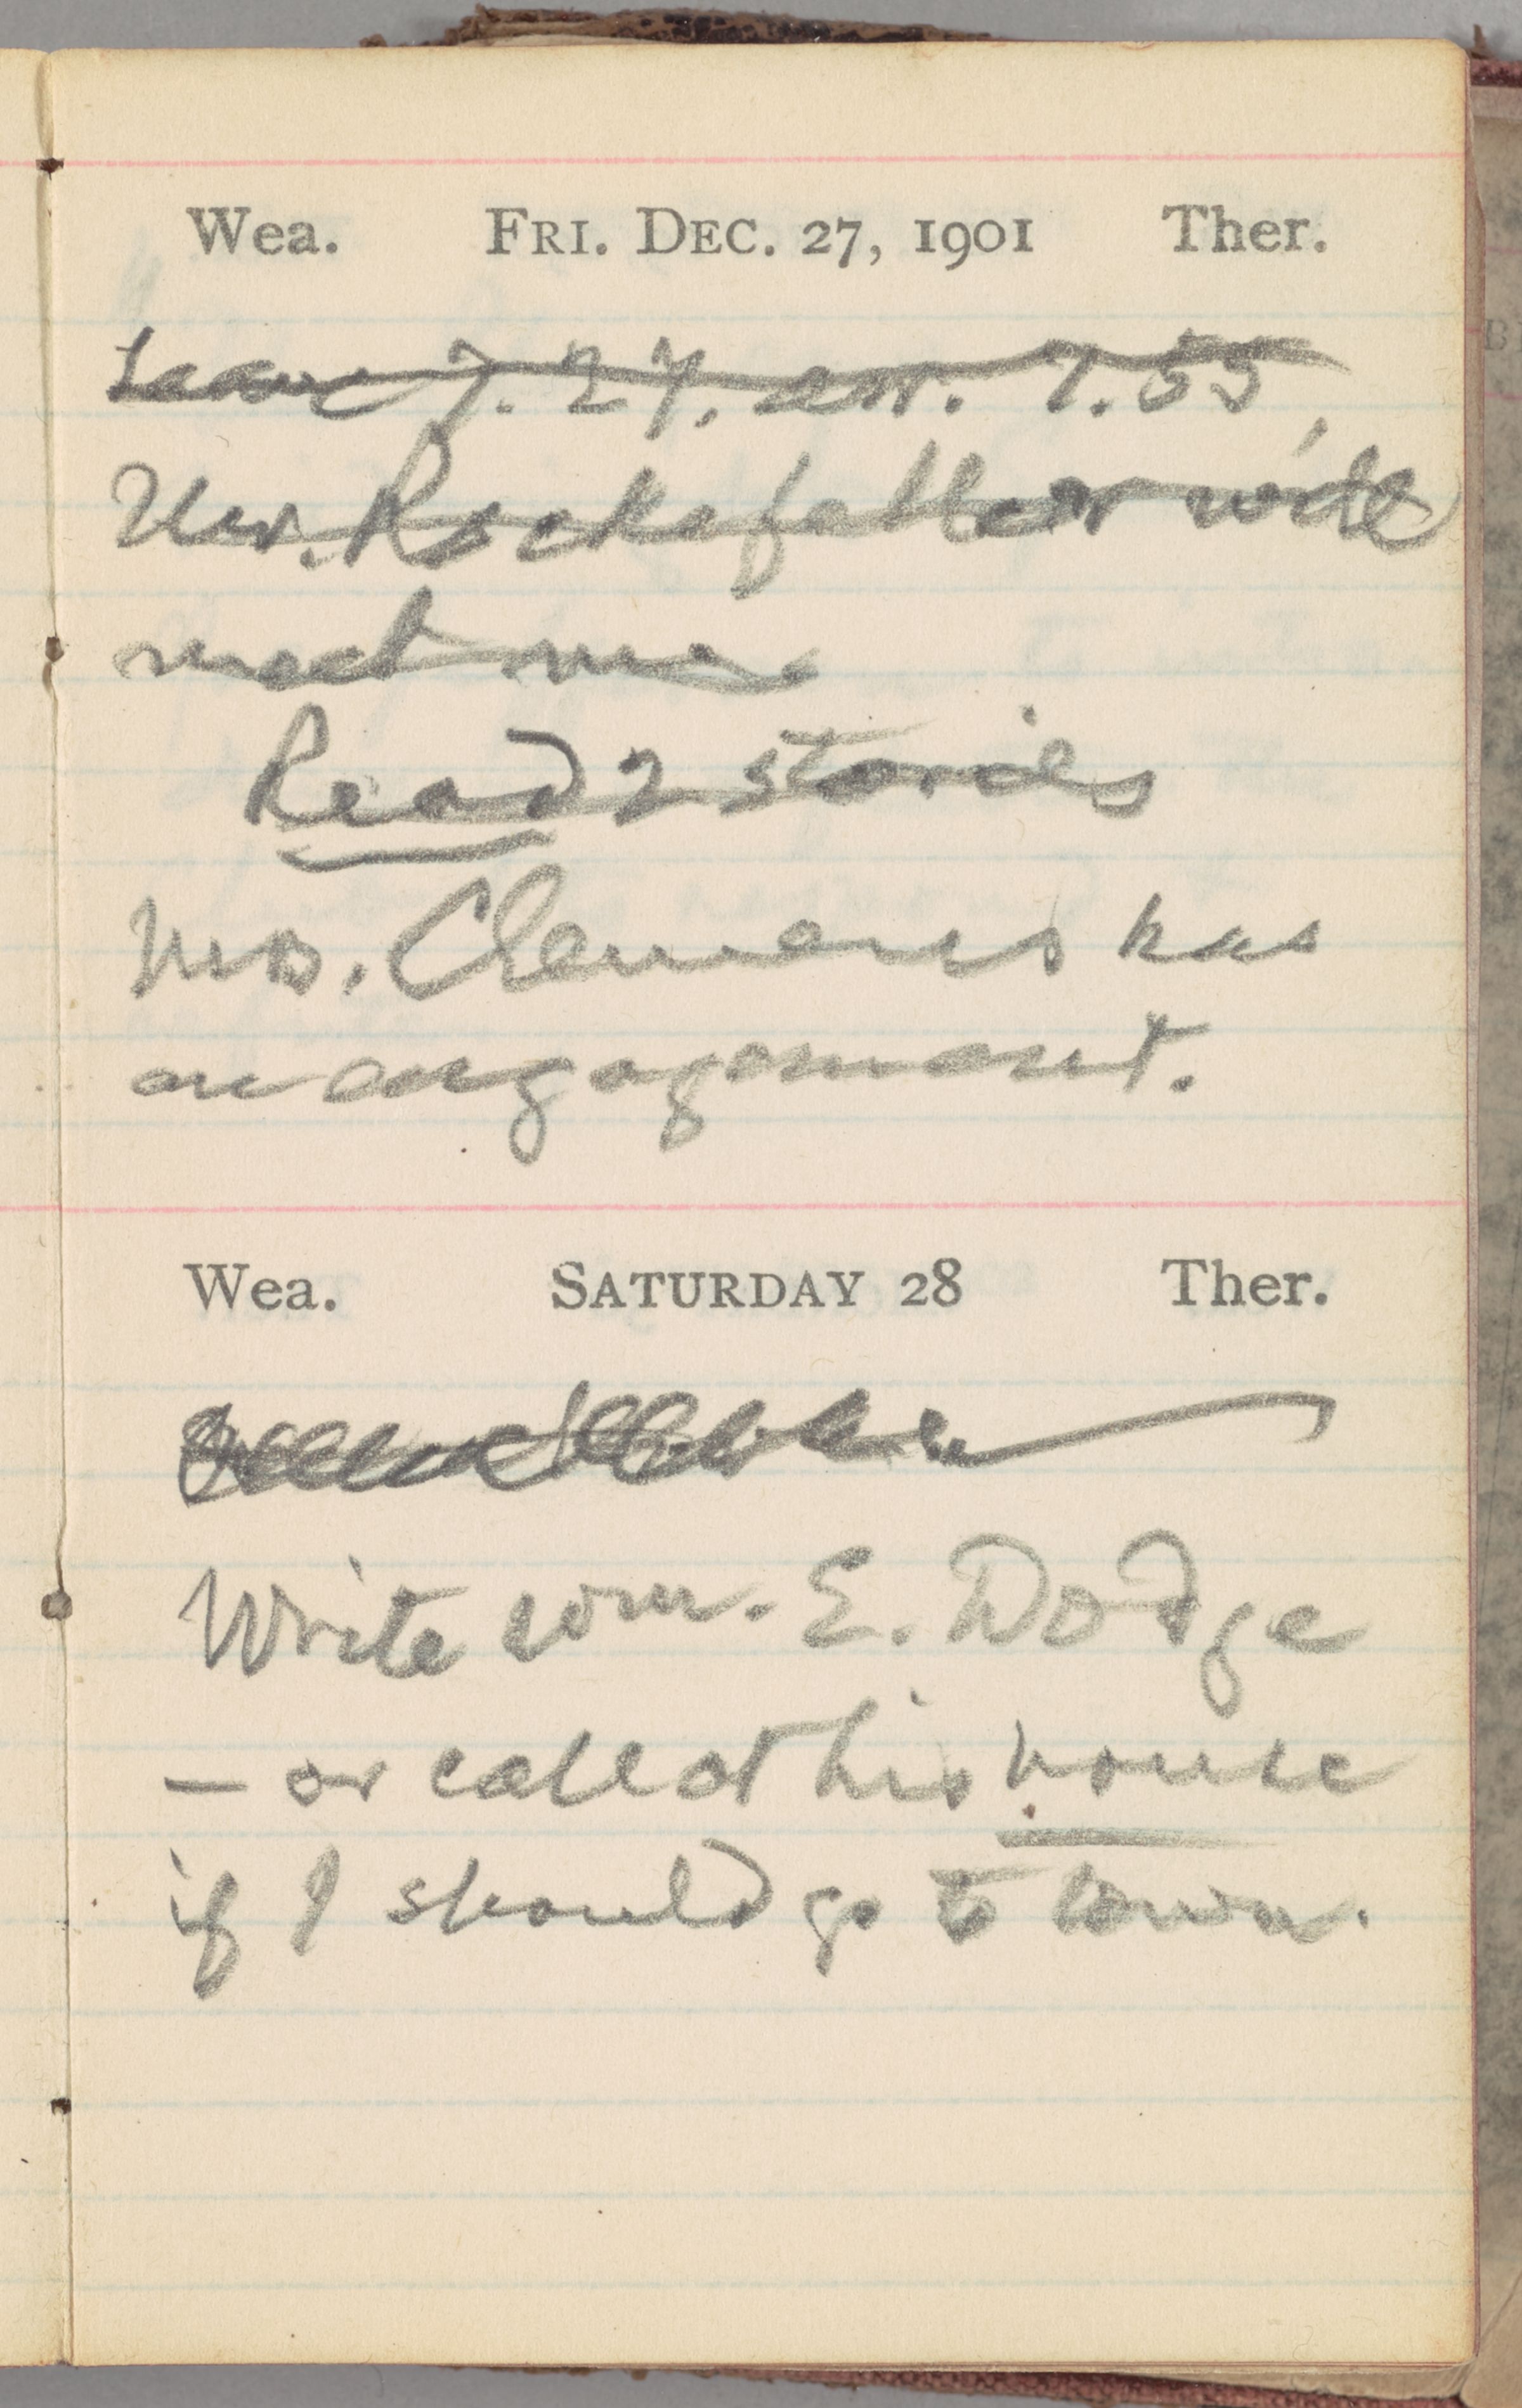 Wea. Fri. Dec. 27, 1901 Ther.
Leave 7.27, arr. 7.55,
Mr. Rockefeller will
meet me
Read 2 stories
Mrs. Clemens has
an engagement.
Wea. Saturday 28 Ther.
Write Wm. E. Dodge
— or call at his house
if I should go to town.